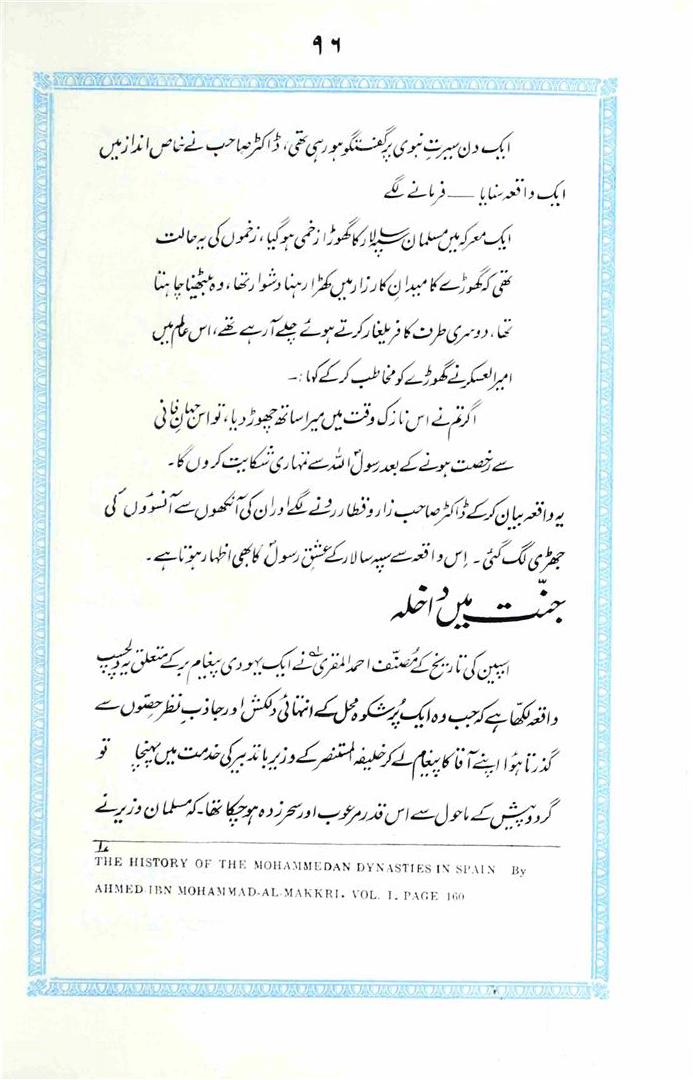 ۹۶
ایک دن سیرتِ نبوی پر گفتگو ہو رہی تھی، ڈاکٹر صاحب نے خاص انداز میں
ایک واقعہ سنایا — فرمانے لگے
ایک معرکہ میں مسلمان سپہ سالار کا گھوڑا زخمی ہو گیا، زخموں کی یہ حالت
تھی کہ گھوڑے کا میدانِ کارزار میں کھڑا رہنا دشوار تھا، وہ بیٹھنا چاہتا
تھا، دوسری طرف کافر یلغار کرتے ہوئے چلے آ رہے تھے، اس عالم میں
امیر العسکر نے گھوڑے کو مخاطب کر کے کہا :-
اگر تم نے اس نازک وقت میں میرا ساتھ چھوڑ دیا، تو اس جہانِ فانی
سے رخصت ہونے کے بعد رسولؐ اللہ سے تمہاری شکایت کروں گا۔
یہ واقعہ بیان کر کے ڈاکٹر صاحب زار و قطار رونے لگے اور ان کی آنکھوں سے آنسوؤں کی
جھڑی لگ گئی۔ اِس واقعہ سے سپہ سالار کے عشقِ رسولؐ کا بھی اظہار ہوتا ہے۔
جنّت میں داخلہ
اسپین کی تاریخ کے مُصنّف احمد المقری لہ نے ایک یہودی پیغام بر کے متعلق یہ دلچسپ
واقعہ لکھّا ہے کہ جب وہ ایک پُرشکوہ محل کے انتہائی دلکش اور جاذب نظر حِصّوں سے
گذرتا ہُوا اپنے آقا کا پیغام لے کر خلیفہ المستنصر کے وزیر باتدبیر کی خدمت میں پہنچا تو
گردوپیش کے ماحول سے اس قدر مرعوب اور سحر زدہ ہو چکا تھا۔ کہ مسلمان وزیر نے
لہ
THE HISTORY OF THE MOHAMMEDAN DYNASTIES IN SPAIN By
AHMED-IBN MOHAMMAD-AL-MAKKRI. VOL. I. PAGE 160